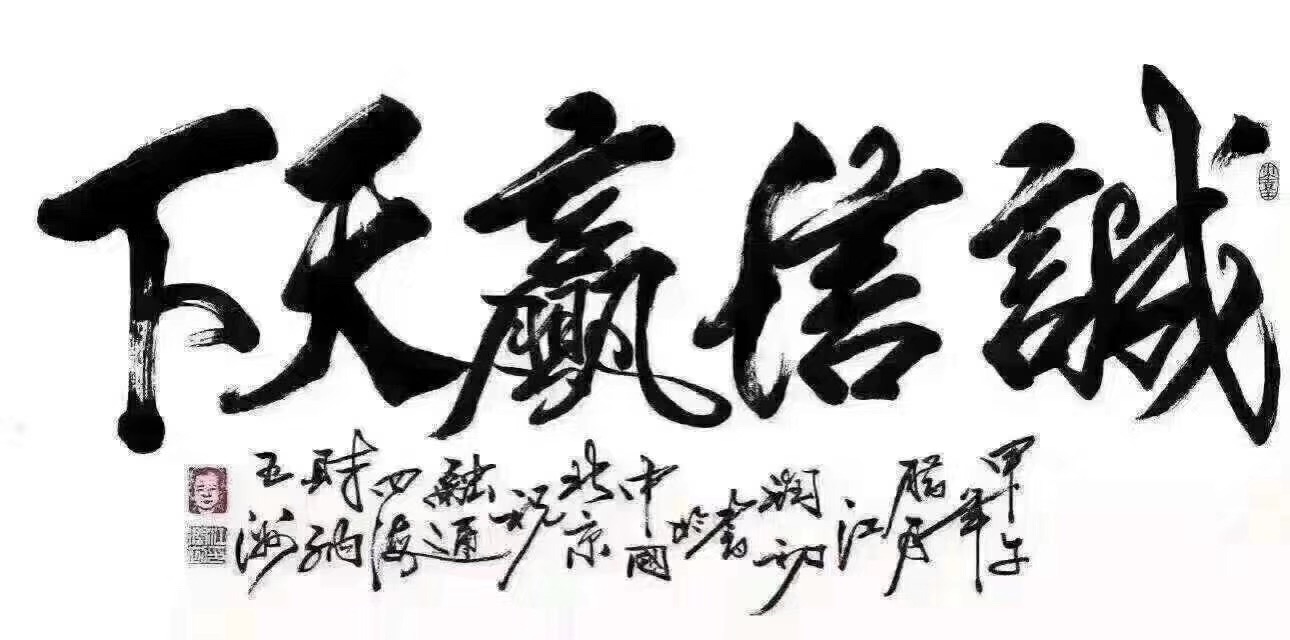 誠信贏天下
甲午
年
臘月
江
潤初
書
於
中國
北京
祝
融通
四海
財納
五洲